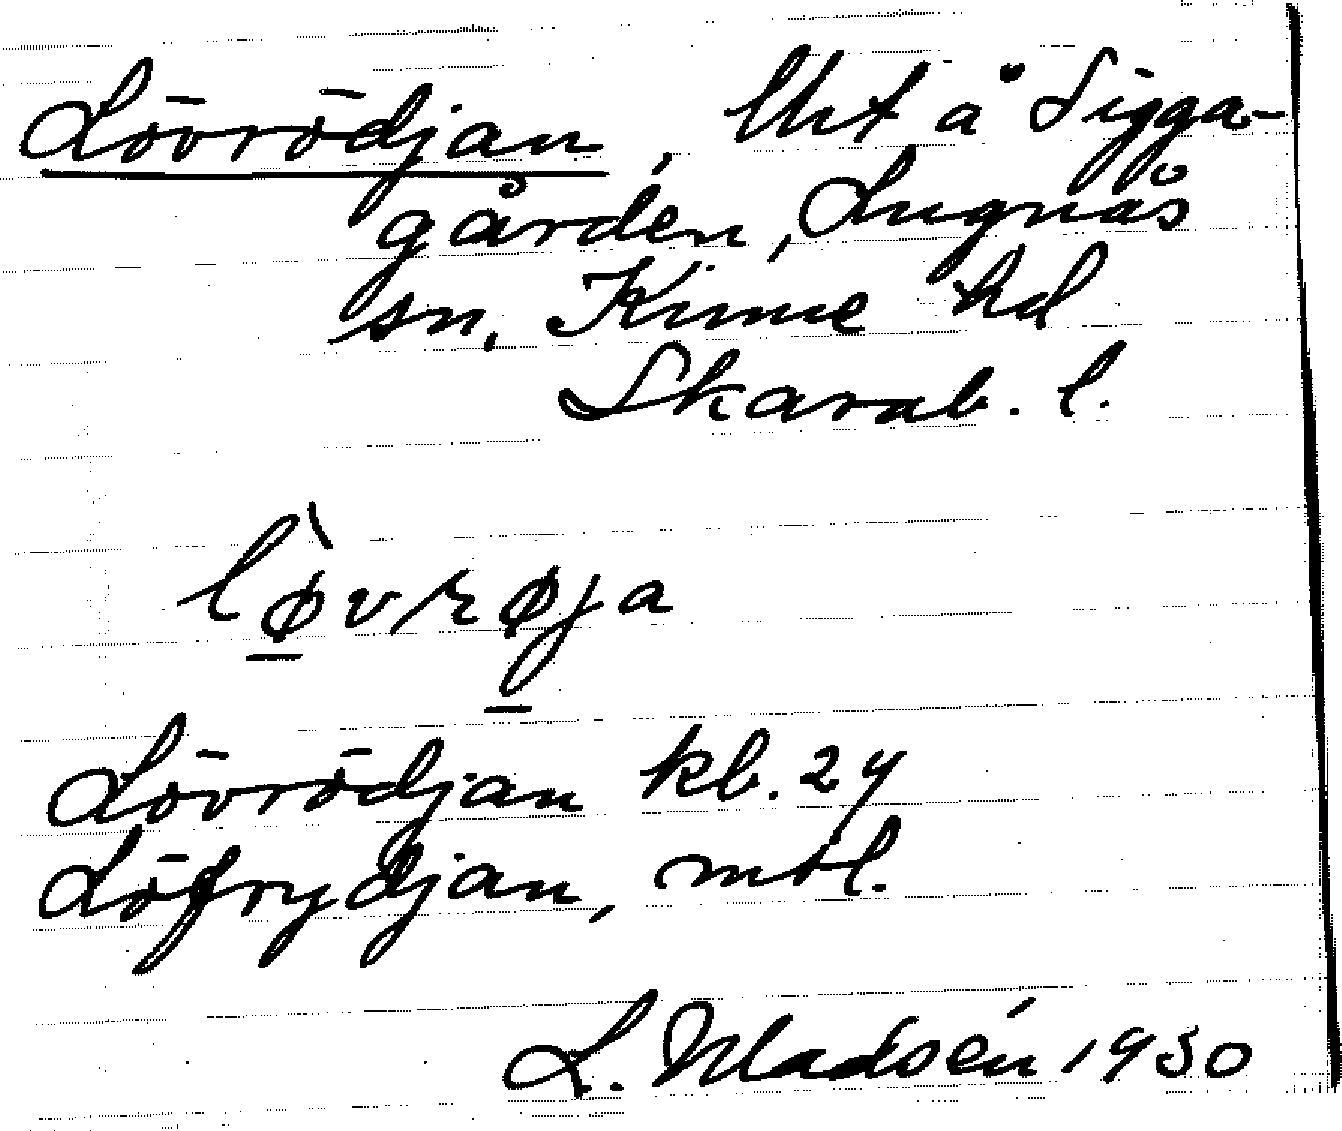 Lövrödjan, lht å Sigga-
gården, Lugnås
sn, Kinne hd
Skarab. l.
lø̱̀vrø̱ja
Lövrödjan kb. 24
Löfrydjan, mtl.
L. Madsén 1930